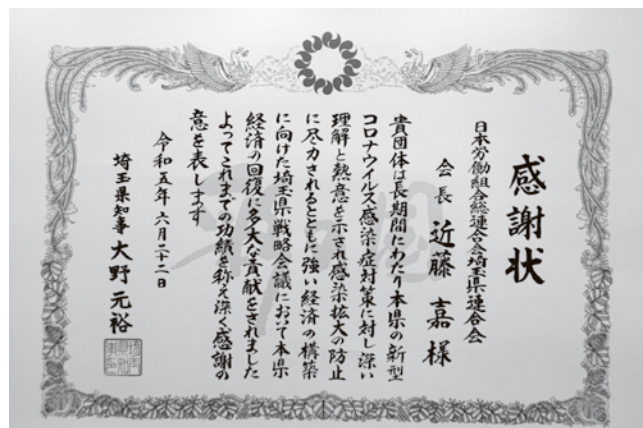 感謝状
日本労働組合総連合会埼玉県連合会
会長 近藤 嘉 様
貴団体は長期間にわたり本県の新型
コロナウイルス感染症対策に対し深い
理解と熱意を示され感染拡大の防止
に尽力されるとともに強い経済の構築
に向けた埼玉県戦略会議において本県
経済の回復に多大な貢献をされました
よってこれまでの功績を称え深く感謝の
意を表します
令和五年六月二十二日
埼玉県知事 大野元裕